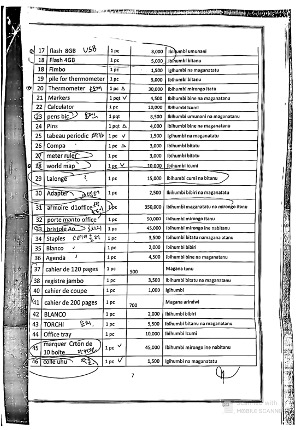 17 flash 8GB USB 1 pc 8,000 Ibihumbi umunani
18 Flash 4GB 1 pc 5,000 Ibihumbi bitanu
19 Fimbo 1 pc 1,500 Igihumbi na maganatanu
19 pile for thermometer 1 pc 5,000 Ibihumbi bitanu
20 Thermometer 1 pc 30,000 Ibihumbi mirongo itatu
21 Markers 1 pqt 4,500 Ibihumbi bine na maganatanu
22 Calculator 1 pc 10,000 Ibihumbi icumi
23 pens bic 1 pqt 8,500 Ibihumbi umunani na maganatanu
24 Pins 1 pqt 4,500 Ibihumbi bine na maganatanu
25 tableau periodic 1 pc 1,500 Igihumbi na maganatanu
26 Compa 1 pc 3,000 Ibihumbi bitatu
27 meter ruler 1 pc 3,000 Ibihumbi bitatu
28 world map 1 pc 10,000 Ibihumbi icumi
29 Lalonge 1 pc 15,000 Ibihumbi cumi na bitanu
30 Adapter 1 pc 2,500 Ibihumbi bibiri na maganatanu
31 armoire d1office 1 pc 350,000 Ibihumbi maganatatu na mirongo itanu
32 porte manto office 1 pc 50,000 Ibihumbi mirongo itanu
33 bristole Ao 1 pc 45,000 Ibihumbi mirongo ine nabitanu
34 Staples 1 pc 3,500 Ibihumbi bitatu namaganatanu
35 Blanco 1 pc 2,000 Ibihumbi bibiri
36 Agenda 1 pc 4,500 Ibihumbi bine na maganatanu
37 cahier de 120 pages 1 pc 500 Magana tanu
38 registre jambo 1 pc 3,500 Ibihumbi bitatu na maganatanu
40 cahier de coupe 1 pc 1,000 Igihumbi
41 cahier de 200 pages 1 pc 700 Magana arindwi
42 BLANCO 1 pc 2,000 Ibihumbi bibiri
43 TORCHI 1 pc 5,500 Ibihumbi bitanu na maganatanu
44 Office tray 1 pc 10,000 Ibihumbi icumi
45 marquer Crton de 10 boite 1 pc 45,000 Ibihumbi mirongo ine nabitanu
46 colle uhu 1 pc 1,500 Igihumbi na maganatanu
7